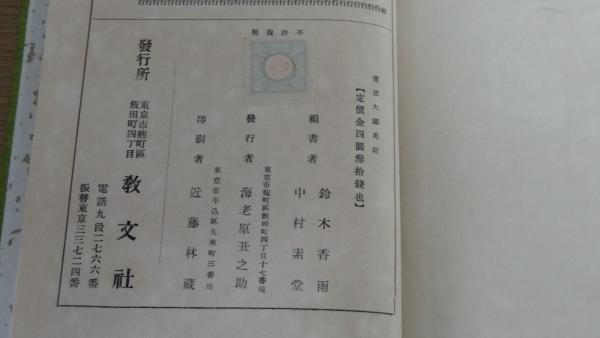 不許複製
書道大鑑奥附
【定價金四圓參拾錢也】
編書者
鈴木香雨
中村素堂
東京市麹町區飯田町四丁目十七番地
發行者
海老原丑之助
東京市牛込區矢來町三番地
印刷者
近藤林藏
發行所
東京市麹町區
飯田町四丁目
敎文社
電話九段二七六六番
振替東京三三七二四番